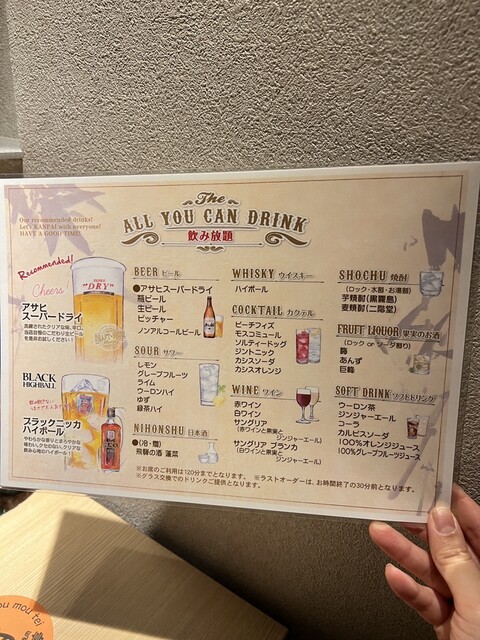 The
ALL YOU CAN DRINK
飲み放題
Our recommended drinks!
Let's KANPAI with everyone!
HAVE A GOOD TIME!
Recommended!
Cheers!
"DRY"
アサヒ
スーパードライ
洗練されたクリアな味、辛口。
当店自慢のこだわり生ビール
を是非お試しください!
BLACK
HIGHBALL
ブラックニッカ
ハイボール
やわらかな香りとまろやかな
味わい。クセのない、クリアな
飲み心地のハイボール!
BEER ビール
●アサヒスーパードライ
瓶ビール
生ビール
ピッチャー
ノンアルコールビール
SOUR サワー
レモン
グレープフルーツ
ライム
ウーロンハイ
ゆず
緑茶ハイ
NIHONSHU 日本酒
●(冷・燗)
飛騨の酒 蓬莱
WHISKY ウイスキー
ハイボール
COCKTAIL カクテル
ピーチフィズ
モスコミュール
ソルティードッグ
ジントニック
カシスソーダ
カシスオレンジ
WINE ワイン
赤ワイン
白ワイン
サングリア
(赤ワインと果実と
ジンジャーエール)
サングリア ブランカ
(白ワインと果実と
ジンジャーエール)
SHOCHU 焼酎
(ロック・水割・お湯割)
芋焼酎(黒霧島)
麦焼酎(二階堂)
FRUIT LIQUOR 果実のお酒
(ロック or ソーダ割り)
梅
あんず
巨峰
SOFT DRINK ソフトドリンク
ウーロン茶
ジンジャーエール
コーラ
カルピスソーダ
100%オレンジジュース
100%グレープフルーツジュース
※お席のご利用は120分までとなります。 ※ラストオーダーは、お時間終了の30分前となります。
※グラス交換でのドリンクご提供となります。
mou mou tei